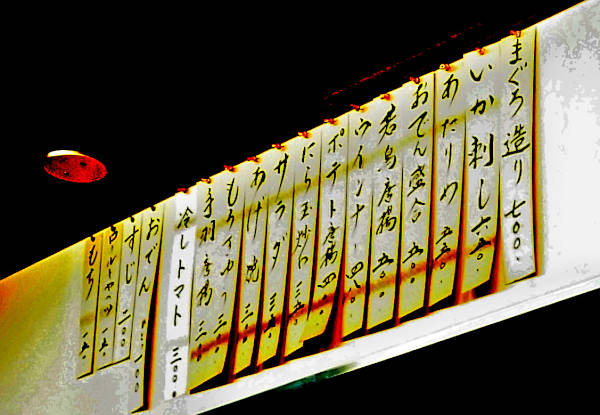 まぐろ造り 七〇〇
いか刺し 六五〇
あたりめ 五五〇
おでん盛合 五五〇
若鳥唐揚 五〇〇
ウインナー 四八〇
ポテト唐揚 四〇〇
にら玉炒め 三五〇
サラダ 三五〇
あげ焼 三〇〇
もろきゅう 三〇〇
手羽唐揚 三〇〇
冷しトマト 三〇〇
おでん 一〇〇
すじ 二〇〇
ロールキャベツ 一五〇
もち 一五〇